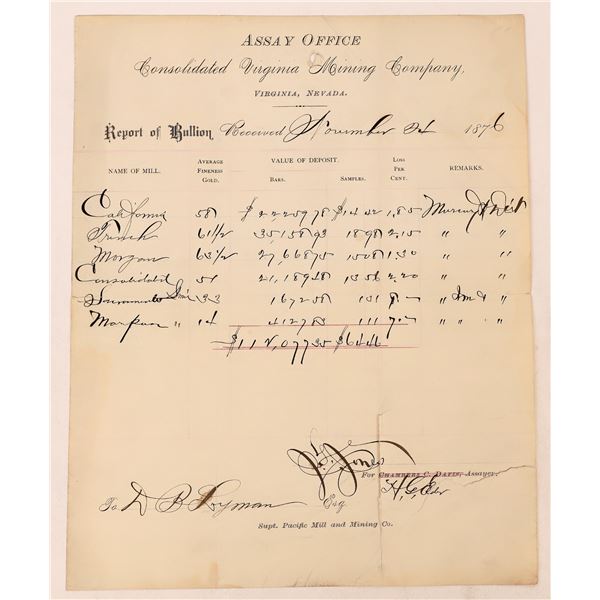 ASSAY OFFICE
Consolidated Virginia Mining Company,
VIRGINIA, NEVADA.
Report of Bullion Received November 24 1876
NAME OF MILL. AVERAGE FINENESS GOLD. VALUE OF DEPOSIT. BARS. SAMPLES. LOSS PER CENT. REMARKS.
California 58 $22,259 78 $14 42 1,85 Mercury &
French 61 1/2 35,158 93 18 98 2,15 " "
Morgan 63 1/2 27,668 75 15 08 1,30 " "
Consolidated 51 21,189 48 13 56 2,20 " "
Sacramento 33 1672 58 1 31 " "
" 14 4127 83 1 11 " "
$112,077 35 $64 46
Jones
For CHAMBERS C. DAVIS, Assayer.
To D B Lyman Esq
Supt. Pacific Mill and Mining Co.